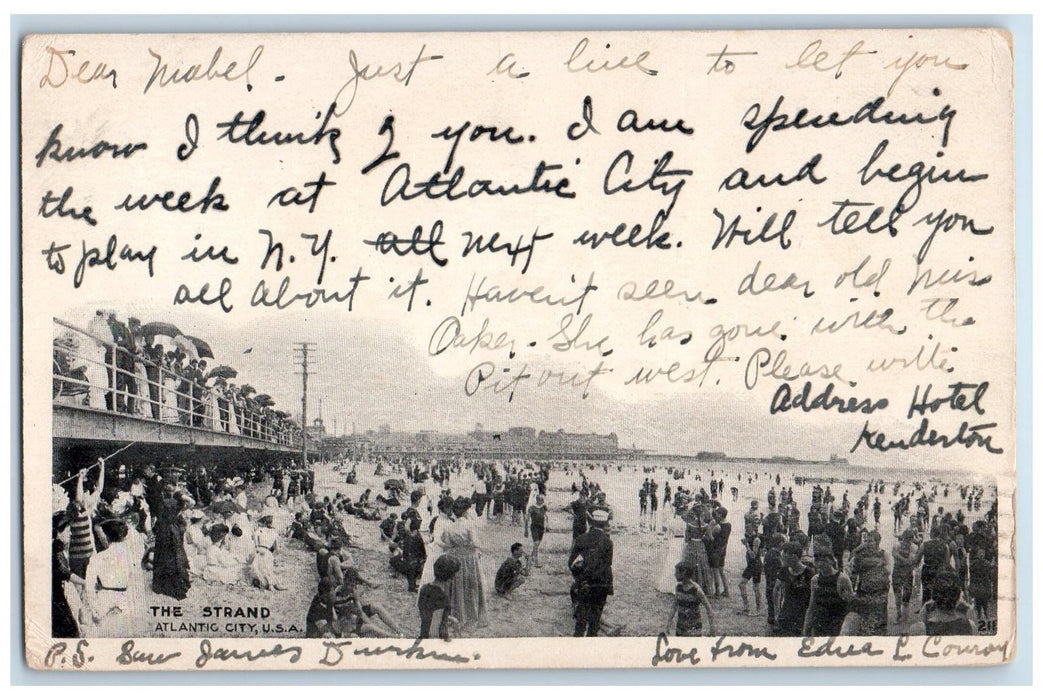 Dear Mabel. Just a line to let you
know I think of you. I am spending
the week at Atlantic City and begin
to play in N.Y. all next week. Will tell you
all about it. Haven't seen dear old Miss
Oaker. She has gone with the
Pit out west. Please write
Address Hotel
Kenderton
THE STRAND
ATLANTIC CITY, U.S.A.
P.S. Saw James Durkin.
Love from Edna L. Conroy